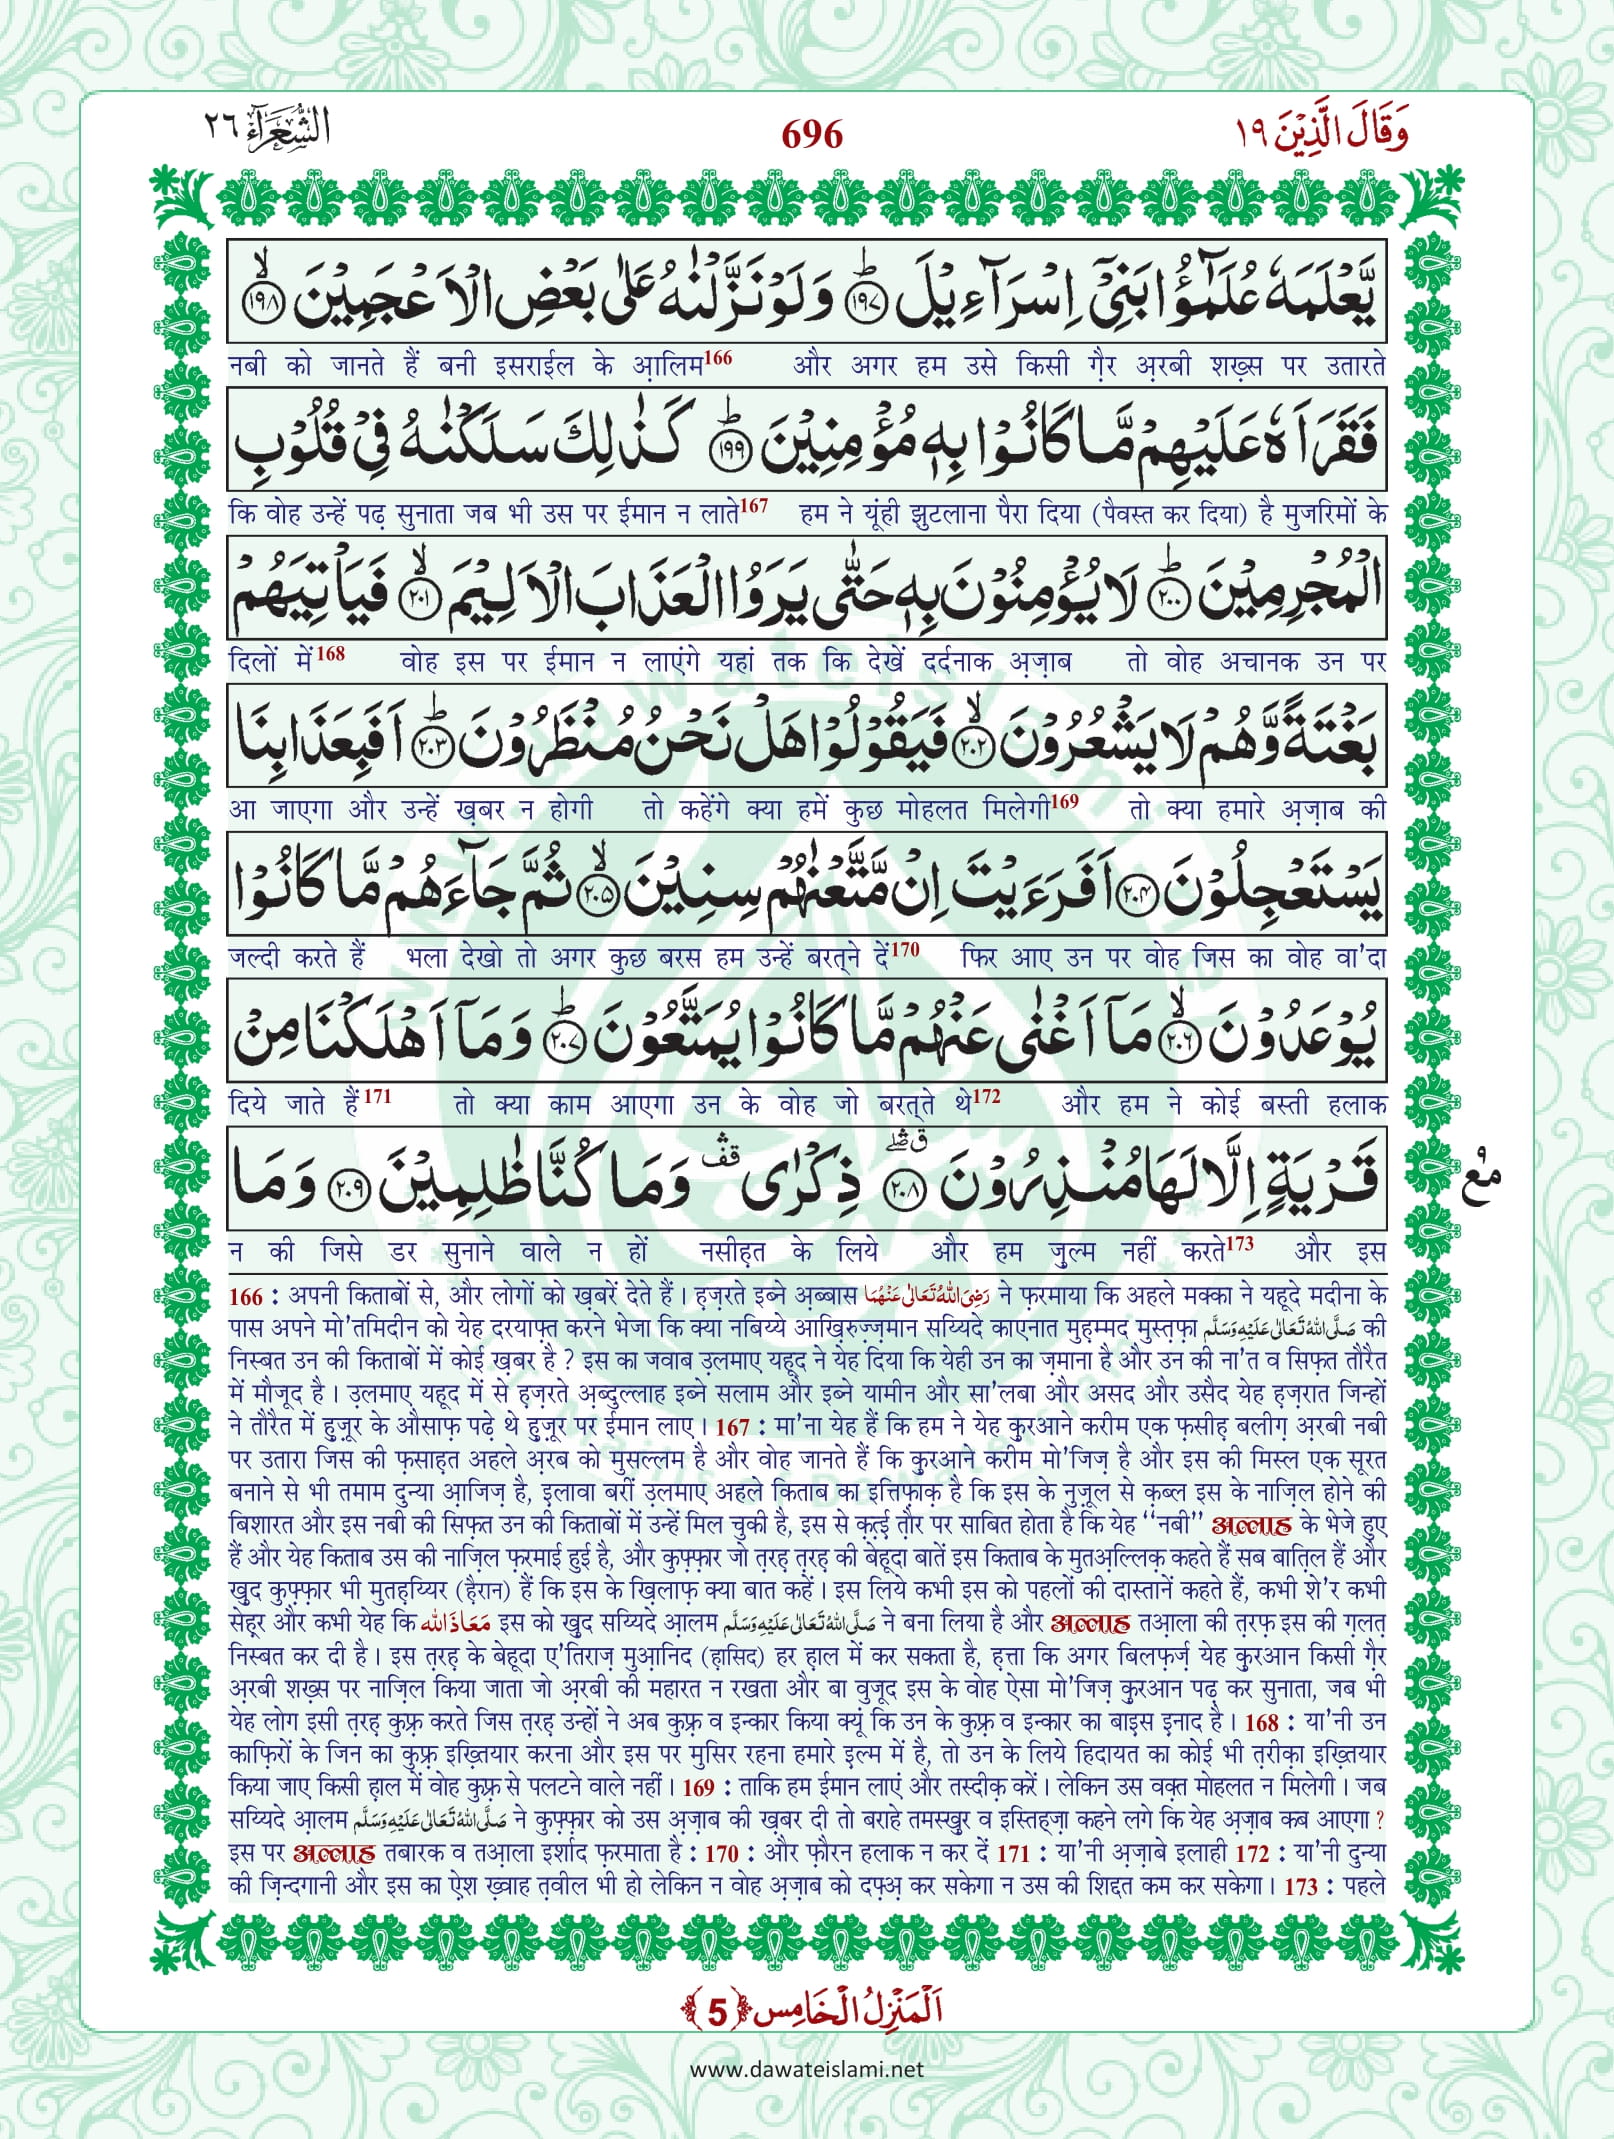 وَقَالَ الَّذِیْنَ ١٩
696
الشُّعَرَآء ٢٦
یَّعْلَمَهٗ عُلَمٰٓؤُا بَنِیْۤ اِسْرَآءِیْلَؕ ﴿١٩٧﴾ وَلَوْ نَزَّلْنٰهُ عَلٰی بَعْضِ الْاَعْجَمِیْنَۙ ﴿١٩٨﴾
नबी को जानते हैं बनी इसराईल के आ़लिम166 और अगर हम उसे किसी ग़ैर अ़रबी शख़्स पर उतारते
فَقَرَاَهٗ عَلَیْهِمْ مَّا كَانُوْا بِهٖ مُؤْمِنِیْنَؕ ﴿١٩٩﴾ كَذٰلِكَ سَلَكْنٰهُ فِیْ قُلُوْبِ
कि वोह उन्हें पढ़ सुनाता जब भी उस पर ईमान न लाते167 हम ने यूंही झुटलाना पैरा दिया (पैवस्त कर दिया) है मुजरिमों के
الْمُجْرِمِیْنَؕ ﴿٢٠٠﴾ لَا یُؤْمِنُوْنَ بِهٖ حَتّٰی یَرَوُا الْعَذَابَ الْاَلِیْمَۙ ﴿٢٠١﴾ فَیَاْتِیَهُمْ
दिलों में168 वोह इस पर ईमान न लाएंगे यहां तक कि देखें दर्दनाक अ़ज़ाब तो वोह अचानक उन पर
بَغْتَةً وَّهُمْ لَا یَشْعُرُوْنَۙ ﴿٢٠٢﴾ فَیَقُوْلُوْا هَلْ نَحْنُ مُنْظَرُوْنَؕ ﴿٢٠٣﴾ اَفَبِعَذَابِنَا
आ जाएगा और उन्हें ख़बर न होगी तो कहेंगे क्या हमें कुछ मोहलत मिलेगी169 तो क्या हमारे अ़ज़ाब की
یَسْتَعْجِلُوْنَ ﴿٢٠٤﴾ اَفَرَءَیْتَ اِنْ مَّتَّعْنٰهُمْ سِنِیْنَۙ ﴿٢٠٥﴾ ثُمَّ جَآءَهُمْ مَّا كَانُوْا
जल्दी करते हैं भला देखो तो अगर कुछ बरस हम उन्हें बरत्ने दें170 फिर आए उन पर वोह जिस का वोह वा'दा
یُوْعَدُوْنَۙ ﴿٢٠٦﴾ مَاۤ اَغْنٰی عَنْهُمْ مَّا كَانُوْا یُمَتَّعُوْنَؕ ﴿٢٠٧﴾ وَمَاۤ اَهْلَكْنَا مِنْ
दिये जाते हैं171 तो क्या काम आएगा उन के वोह जो बरत्ते थे172 और हम ने कोई बस्ती हलाक
قَرْیَةٍ اِلَّا لَهَا مُنْذِرُوْنَ ﴿٢٠٨﴾ ذِكْرٰی وَمَا كُنَّا ظٰلِمِیْنَ ﴿٢٠٩﴾ وَمَا
न की जिसे डर सुनाने वाले न हों नसीह़त के लिये और हम ज़ुल्म नहीं करते173 और इस
166 : अपनी किताबों से, और लोगों को ख़बरें देते हैं। ह़ज़रते इब्ने अ़ब्बास رَضِیَ اللهُ تَعَالٰی عَنْهُمَا ने फ़रमाया कि अहले मक्का ने यहूदे मदीना के
पास अपने मो'तमिदीन को येह दरयाफ़्त करने भेजा कि क्या नबिय्ये आख़िरुज़्ज़मान सय्यिदे काएनात मुह़म्मद मुस्त़फ़ा صَلَّی اللهُ تَعَالٰی عَلَیْهِ وَسَلَّم की
निस्बत उन की किताबों में कोई ख़बर है ? इस का जवाब उ़लमाए यहूद ने येह दिया कि येही उन का ज़माना है और उन की ना'त व सिफ़त तौरैत
में मौजूद है। उ़लमाए यहूद में से ह़ज़रते अ़ब्दुल्लाह इब्ने सलाम और इब्ने यामीन और सा'लबा और असद और उसैद येह ह़ज़रात जिन्हों
ने तौरैत में हु़ज़ूर के औसाफ़ पढ़े थे हु़ज़ूर पर ईमान लाए। 167 : मा'ना येह हैं कि हम ने येह क़ुरआने करीम एक फ़सीह़ बलीग़ अ़रबी नबी
पर उतारा जिस की फ़साह़त अहले अ़रब को मुसल्लम है और वोह जानते हैं कि क़ुरआने करीम मो'जिज़ है और इस की मिस्ल एक सूरत
बनाने से भी तमाम दुन्या आ़जिज़ है, इ़लावा बरीं उ़लमाए अहले किताब का इत्तिफ़ाक़ है कि इस के नुज़ूल से क़ब्ल इस के नाज़िल होने की
बिशारत और इस नबी की सिफ़त उन की किताबों में उन्हें मिल चुकी है, इस से क़त़्ई़ त़ौर पर साबित होता है कि येह ‘‘नबी’’ अल्लाह के भेजे हुए
हैं और येह किताब उस की नाज़िल फ़रमाई हुई है, और कुफ़्फ़ार जो त़रह़ त़रह़ की बेहूदा बातें इस किताब के मुतअ़ल्लिक़ कहते हैं सब बात़िल हैं और
ख़ुद कुफ़्फ़ार भी मुतह़य्यिर (ह़ैरान) हैं कि इस के ख़िलाफ़ क्या बात कहें। इस लिये कभी इस को पहलों की दास्तानें कहते हैं, कभी शे'र कभी
सेह़्र और कभी येह कि مَعَاذَ الله इस को ख़ुद सय्यिदे आ़लम صَلَّی اللهُ تَعَالٰی عَلَیْهِ وَسَلَّم ने बना लिया है और अल्लाह तआ़ला की त़रफ़ इस की ग़लत़
निस्बत कर दी है। इस त़रह़ के बेहूदा ए'तिराज़ मुआ़निद (ह़ासिद) हर ह़ाल में कर सकता है, ह़त्ता कि अगर बिलफ़र्ज़ येह क़ुरआन किसी ग़ैर
अ़रबी शख़्स पर नाज़िल किया जाता जो अ़रबी की महारत न रखता और बा वुजूद इस के वोह ऐसा मो'जिज़ क़ुरआन पढ़ कर सुनाता, जब भी
येह लोग इसी त़रह़ कुफ़्र करते जिस त़रह़ उन्हों ने अब कुफ़्र व इन्कार किया क्यूं कि उन के कुफ़्र व इन्कार का बाइस इ़नाद है। 168 : या'नी उन
काफ़िरों के जिन का कुफ़्र इख़्तियार करना और इस पर मुसिर रहना हमारे इ़ल्म में है, तो उन के लिये हिदायत का कोई भी त़रीक़ा इख़्तियार
किया जाए किसी ह़ाल में वोह कुफ़्र से पलटने वाले नहीं। 169 : ताकि हम ईमान लाएं और तस्दीक़ करें। लेकिन उस वक़्त मोहलत न मिलेगी। जब
सय्यिदे आ़लम صَلَّی اللهُ تَعَالٰی عَلَیْهِ وَسَلَّم ने कुफ़्फ़ार को उस अ़ज़ाब की ख़बर दी तो बराहे तमस्ख़ुर व इस्तिहज़ा कहने लगे कि येह अ़ज़ाब कब आएगा ?
इस पर अल्लाह तबारक व तआ़ला इर्शाद फ़रमाता है : 170 : और फ़ौरन हलाक न कर दें 171 : या'नी अ़ज़ाबे इलाही 172 : या'नी दुन्या
की ज़िन्दगानी और इस का ऐ़श ख़्वाह त़वील भी हो लेकिन न वोह अ़ज़ाब को दफ़्अ़ कर सकेगा न उस की शिद्दत कम कर सकेगा। 173 : पहले
اَلْمَنْزِلُ الْخَامِس ﴿5﴾
www.dawateislami.net